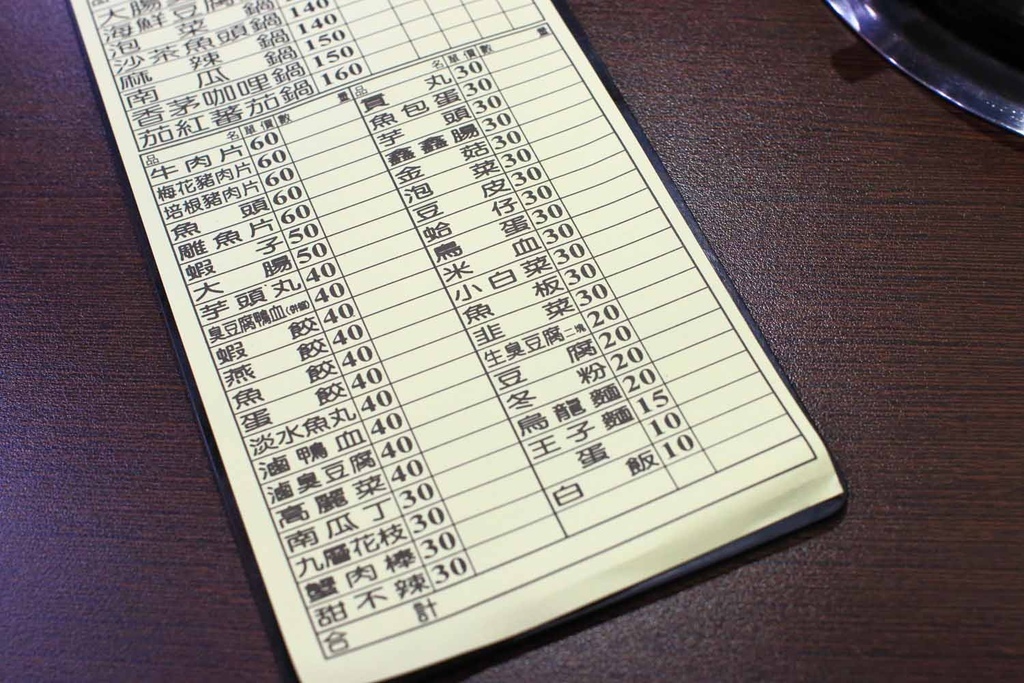 海鮮豆腐鍋
泡菜鍋
沙茶魚頭鍋 140
麻辣鍋 140
南瓜鍋 150
香茅咖哩鍋 150
茄紅蕃茄鍋 160
品名 單價 數量
牛肉片 60
梅花豬肉片 60
培根豬肉片 60
魚頭 60
雕魚片 60
蝦子 50
大腸 50
芋頭丸 40
臭豆腐鴨血 40
蝦餃 40
燕餃 40
魚餃 40
蛋餃 40
淡水魚丸 40
滷鴨血 40
滷臭豆腐 40
高麗菜 40
南瓜丁 30
九層花枝 30
蟹肉棒 30
甜不辣 30
合計
品名 單價 數量
貢丸 30
魚包蛋 30
芋頭 30
鑫鑫腸 30
金菇 30
泡菜 30
豆皮 30
蛤仔 30
鳥蛋 30
米血 30
小白菜 30
魚板 30
韭菜 30
生臭豆腐二塊 20
豆腐 20
冬粉 20
烏龍麵 20
王子麵 15
蛋 10
白飯 10